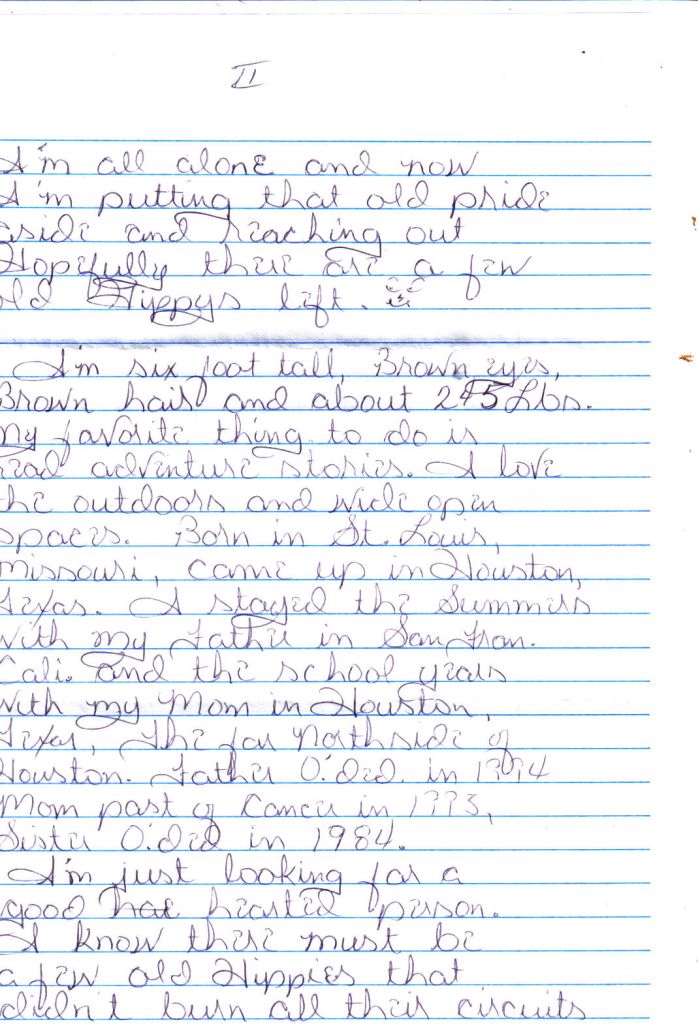 II
I'm all alone and now
I'm putting that old pride
aside and reaching out
Hopefully there are a few
old Hippys left.
I'm six foot tall, Brown eyes,
Brown hair and about 245 Lbs.
My favorite thing to do is
read adventure stories. I love
the outdoors and wide open
spaces. Born in St. Louis,
Missouri, came up in Houston,
Texas. I stayed the Summers
with my Father in San Fran.
Cali. and the school years
with my Mom in Houston,
Texas, The far Northside of
Houston. Father O.'ded. in
Mom past of Cancer in 1993,
Sister O.'ded in 1984.
I'm just looking for a
good hearted person.
I know there must be
a few old Hippies that
didn't burn all their circuits